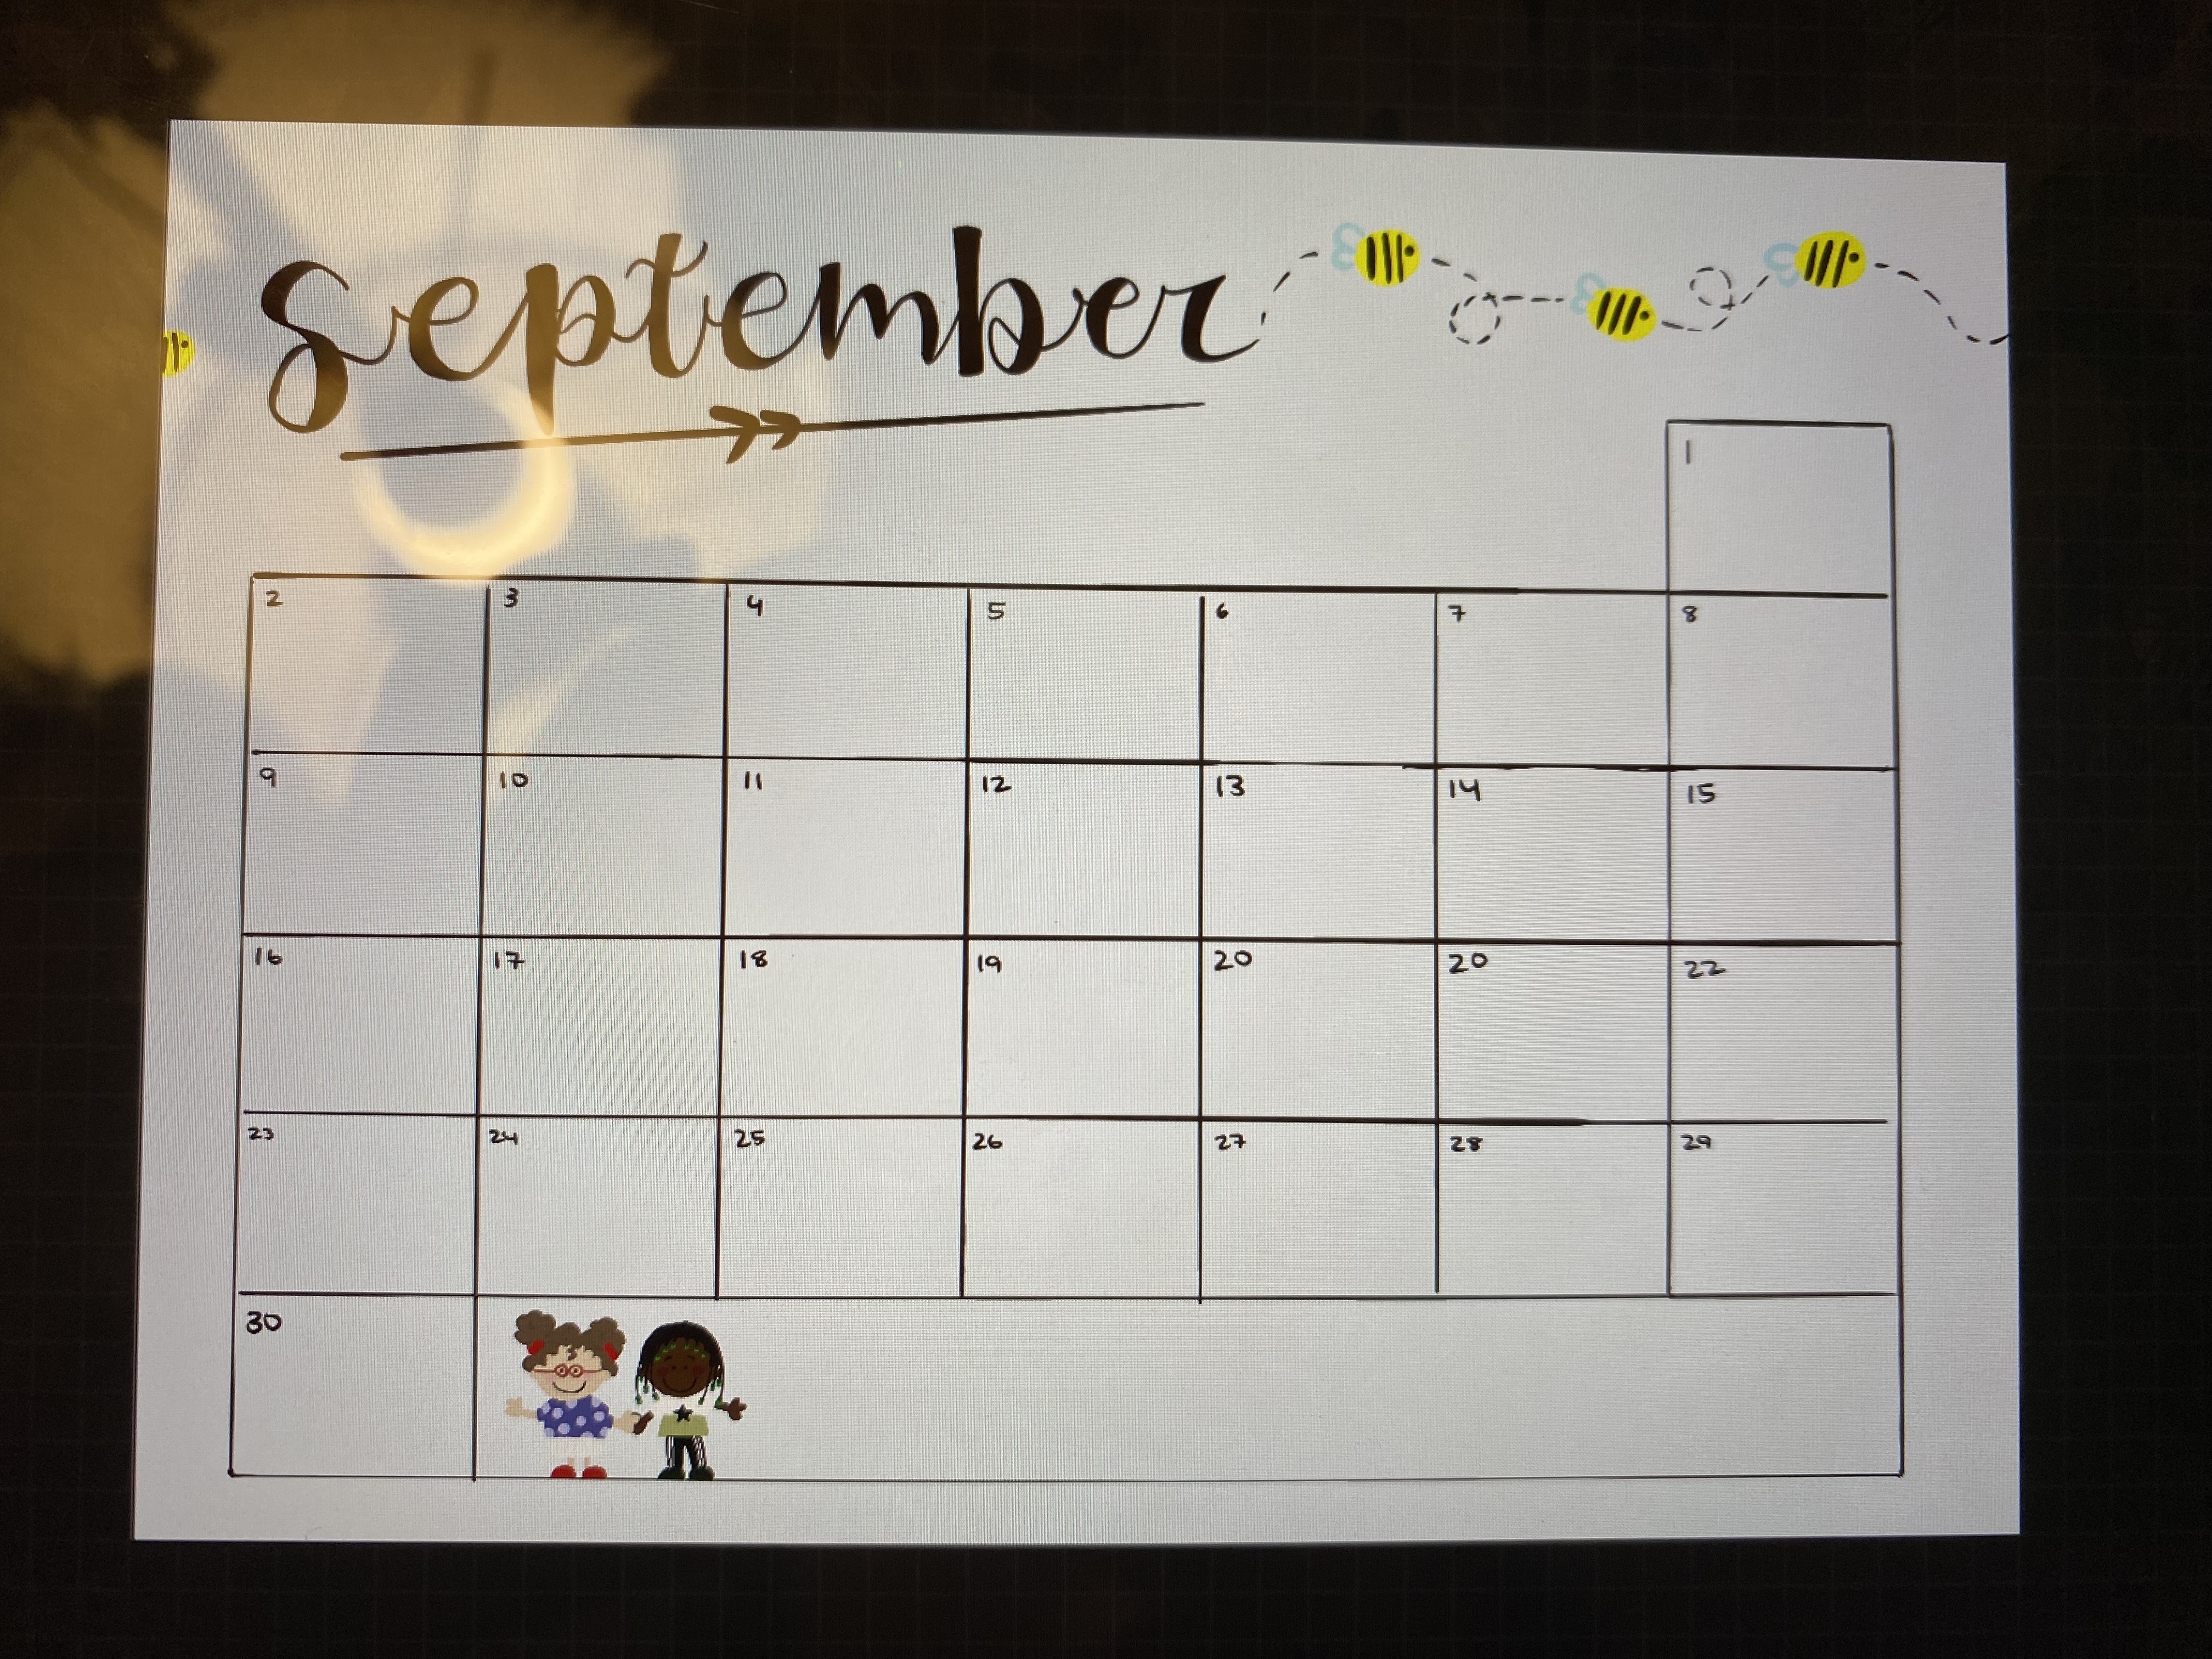 September
1
2 3 4 5 6 7 8
9 10 11 12 13 14 15
16 17 18 19 20 20 22
23 24 25 26 27 28 29
30